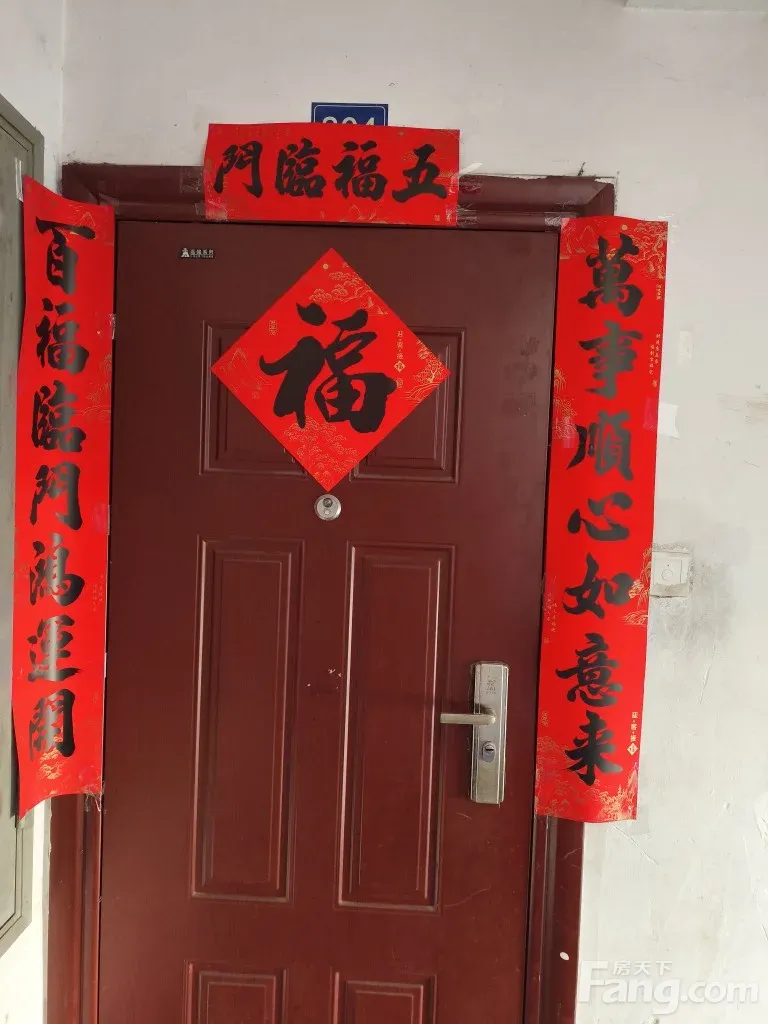 五福臨門
萬事順心如意来
百福臨門鴻運開
福
房天下
Fang.com